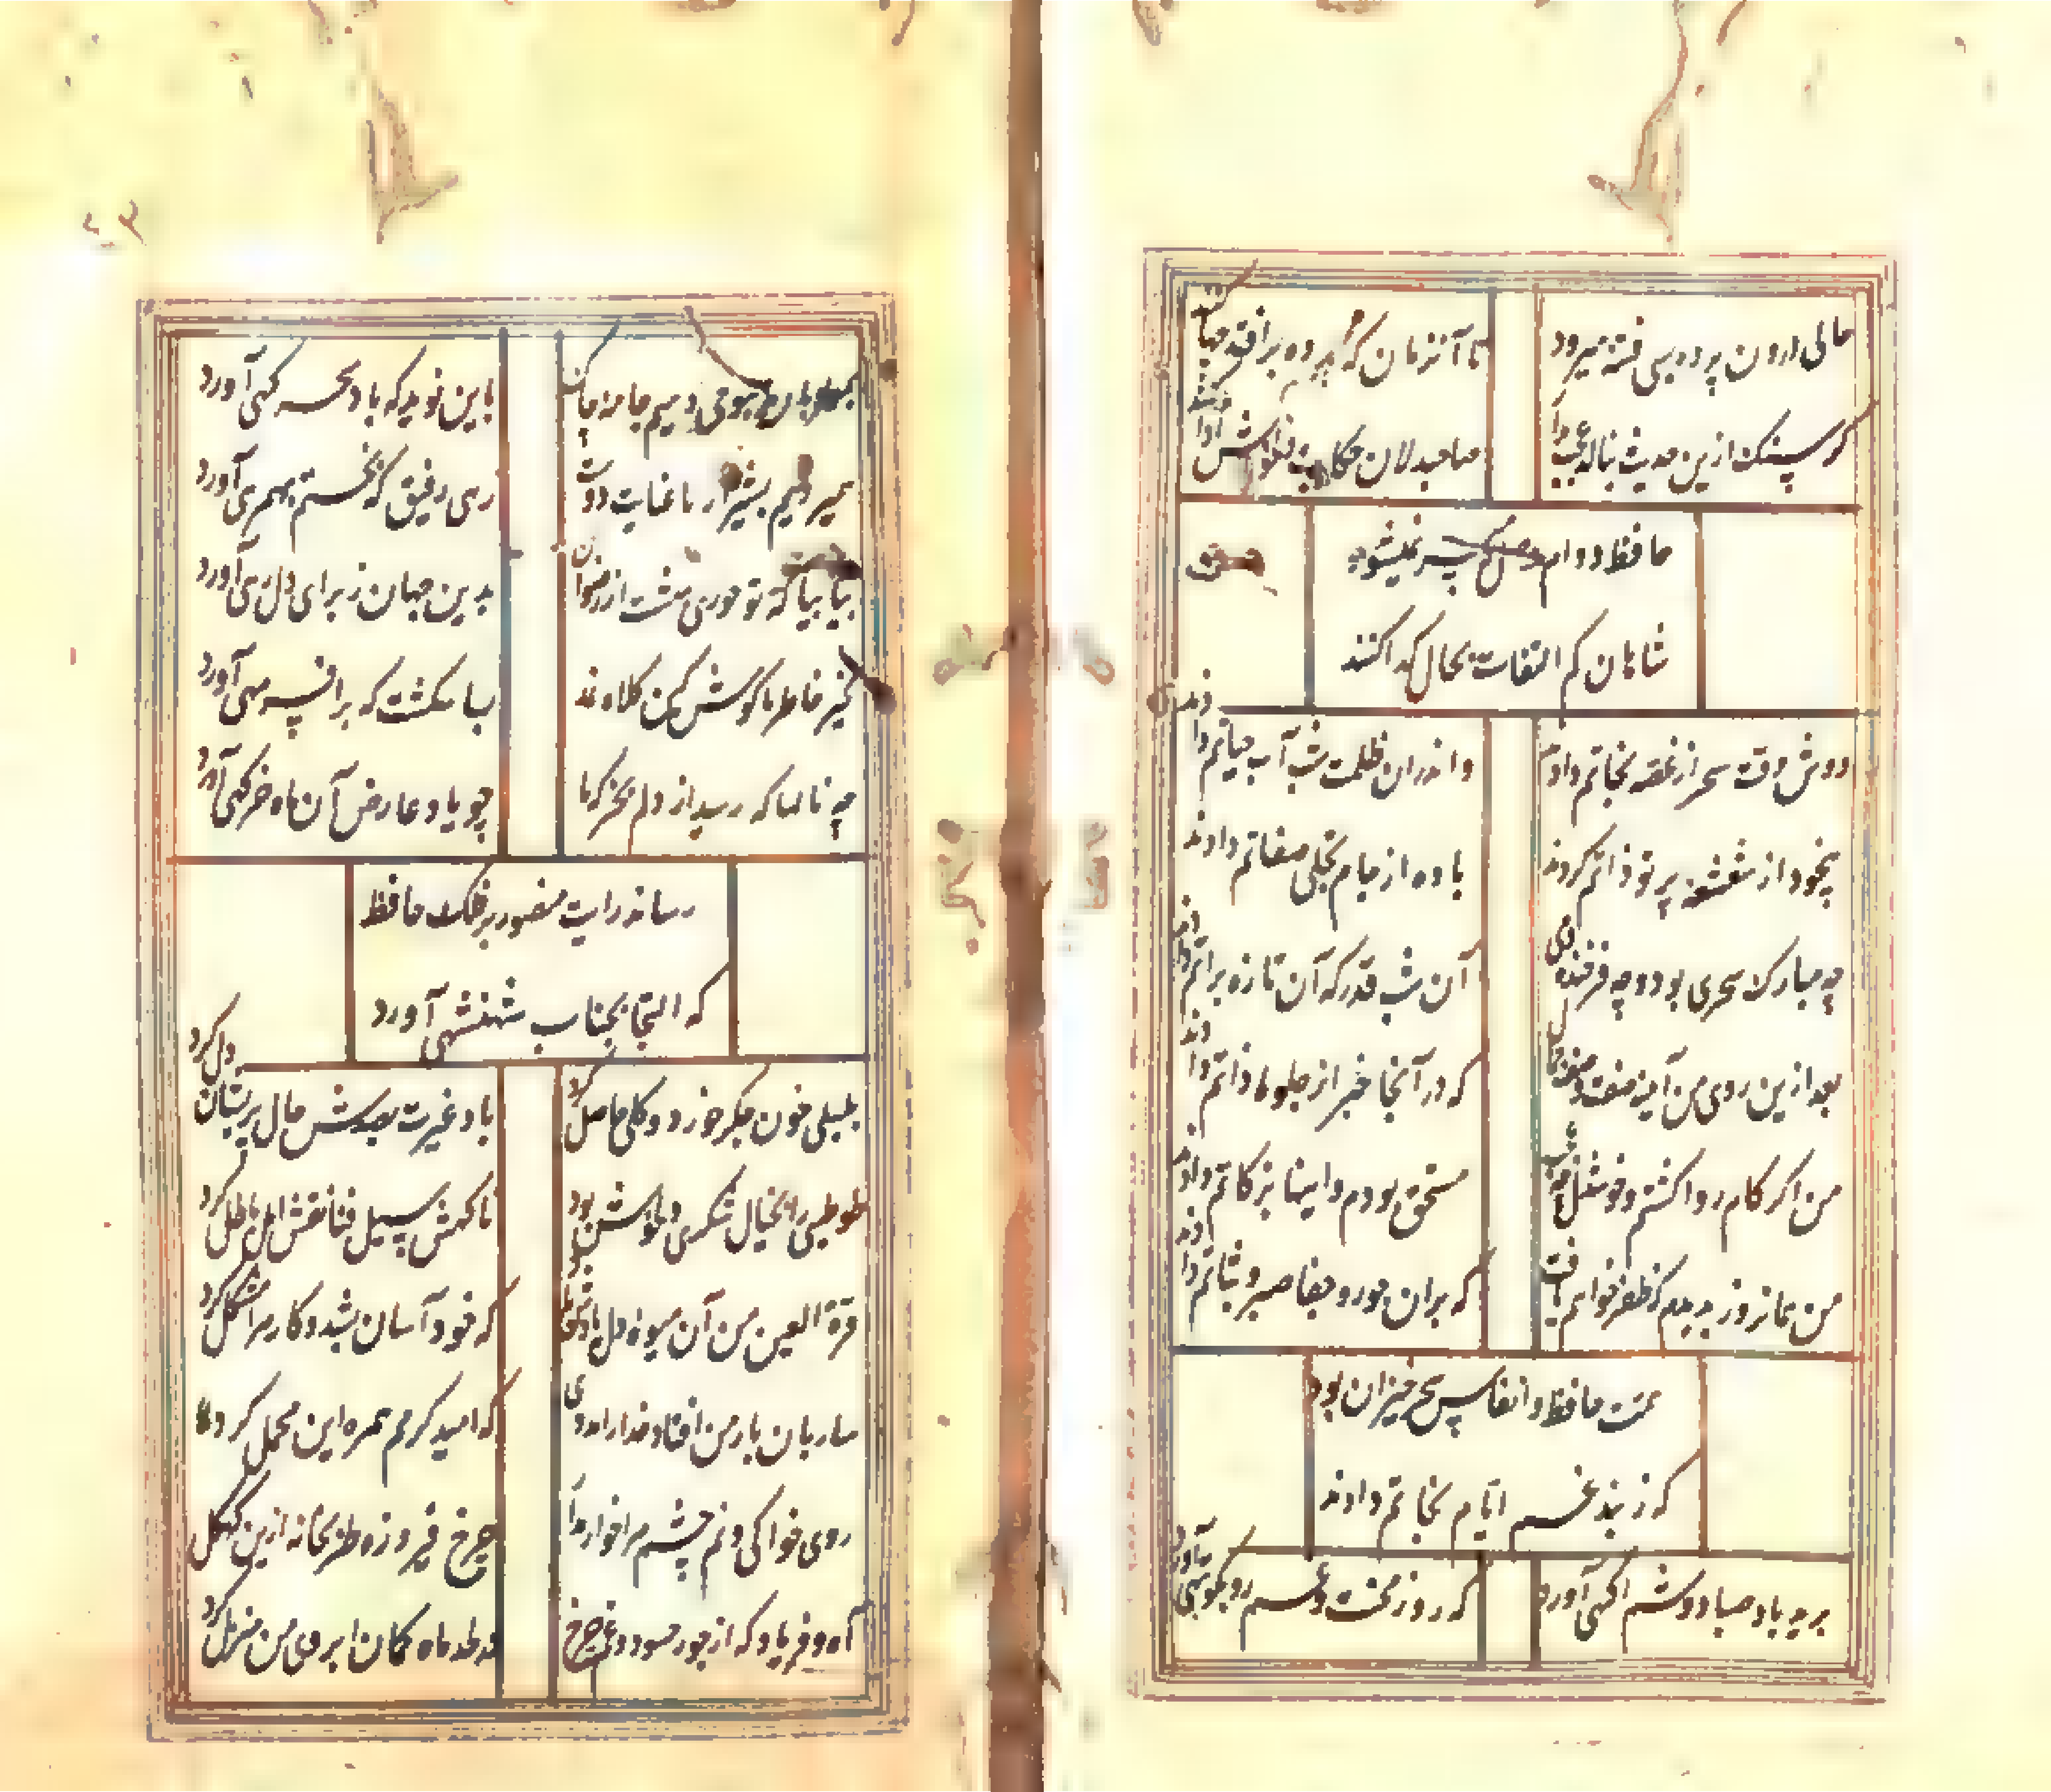 حالی درون پرده بسی فتنه میرود
تا آنزمان که پرده برافتد چها کنند
گر سنک ازین حدیث بنالد عجب مدار
صاحبدلان حکایت دل خوش ادا کنند
حافظ دوام وصل میسر نمیشود
شاهان کم التفات بحال گدا کنند
دوش وقت سحر از غصه نجاتم دادند
واندران ظلمت شب آب حیاتم دادند
بیخود از شعشعه پرتو ذاتم کردند
باده از جام تجلی صفاتم دادند
چه مبارک سحری بود و چه فرخنده شبی
آن شب قدر که آن تازه براتم دادند
بعد ازین روی من و آینه وصف جمال
که در آنجا خبر از جلوه ذاتم دادند
من اگر کام روا گشتم و خوشدل چه عجب
مستحق بودم و اینها بزکاتم دادند
من همانروز بدیدم که ظفر خواهم یافت
که بران جور و جفا صبر و ثباتم دادند
همت حافظ و انفاس سحرخیزان بود
که ز بند غم ایام نجاتم دادند
برید باد صبا دوشم آگهی آورد
که روز محنت و غم رو بکوتهی آورد
بمطربان صبوحی دهیم جامه چاک
باین نوید که باد سحر گهی آورد
همیرویم بشیراز با عنایت دوست
زهی رفیق که بختم بهمرهی آورد
بیا بیا که تو حوری بهشت را رضوان
بدین جهان ز برای دل رهی آورد
بخیر خاطر ما کوش کین کلاه نمد
بسا شکست که بر افسر شهی آورد
چه نالها که رسید از دلم بخرگه ماه
چو یاد عارض آن ماه خرگهی آورد
رساند رایت منصور بر فلک حافظ
که التجا بجناب شهنشهی آورد
بلبلی خون جگر خورد و گلی حاصل کرد
باد غیرت بصدش حال پریشان دل کرد
طوطیی را بخیال شکری دل خوش بود
ناکهش سیل فنا نقش امل باطل کرد
قرة العین من آن میوه دل یادش باد
که خود آسان بشد و کار مرا مشکل کرد
ساربان بار من افتاد خدا را مددی
که امید کرمم همره این محمل کرد
روی خاکی و نم چشم مرا خوار مدار
چرخ فیروزه طربخانه ازین کهکل
آه و فریاد که از چشم حسود مه چرخ
در لحد ماه کمان ابروی من منزل کرد